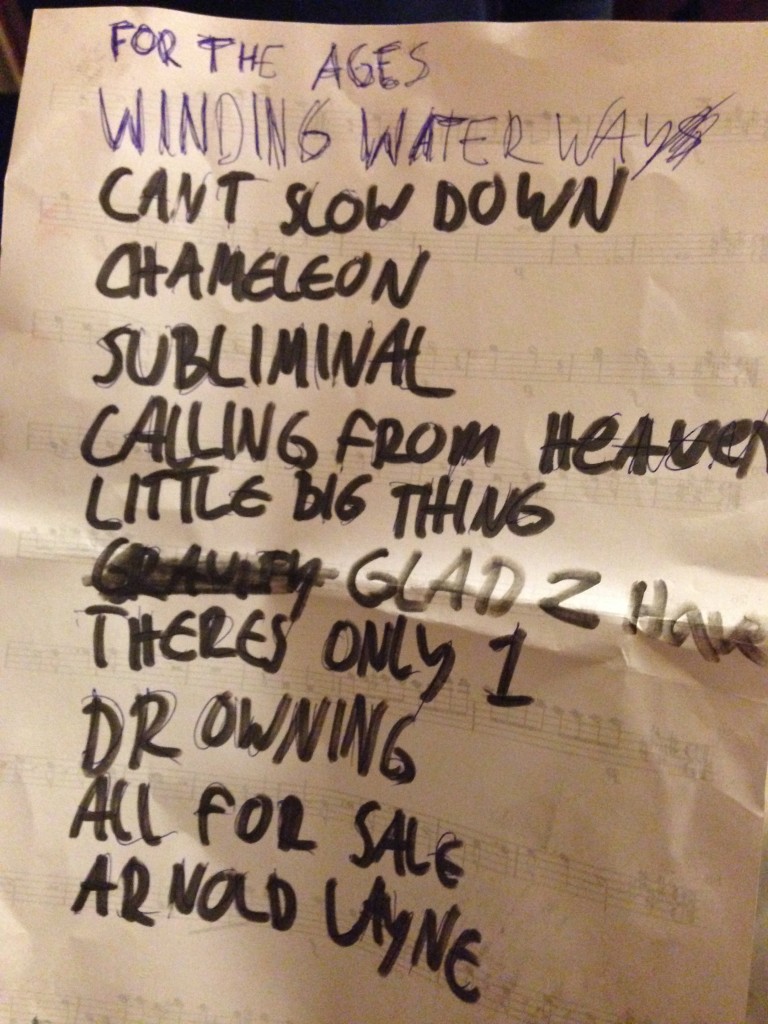 FOR THE AGES
WINDING WATER WAY
CANT SLOW DOWN
CHAMELEON
SUBLIMINAL
CALLING FROM HEAVEN
LITTLE BIG THING
GRAVITY GLAD 2 Have
THERES ONLY 1
DROWNING
ALL FOR SALE
ARNOLD LAYNE